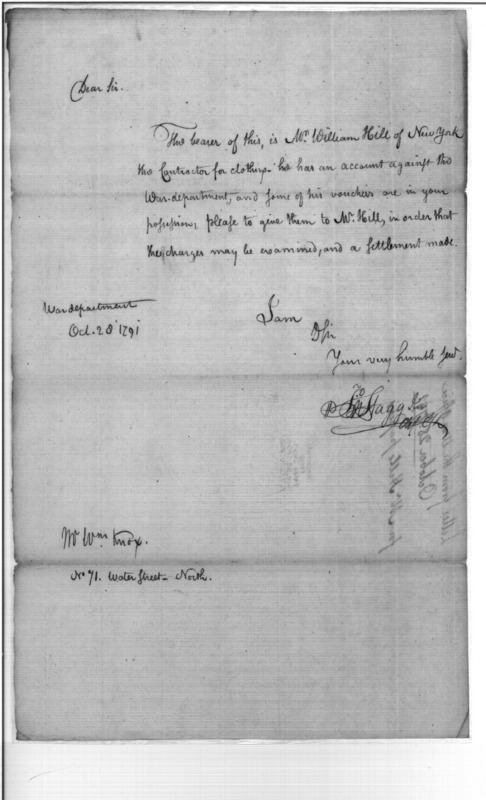 Dear Sir.
The bearer of this, is Mr. William Hill of New York
the Contractor for clothing - he has an account against the
War-department, and some of his vouchers are in your
possession, please to give them to Mr. Hill, in order that
the charges may be examined, and a settlement made.
War department
Oct. 28 1791
I am
D Sir
Your very humble Serv.
Jno Stagg
Mr Wm Knox.
No 71. Water Street - North.